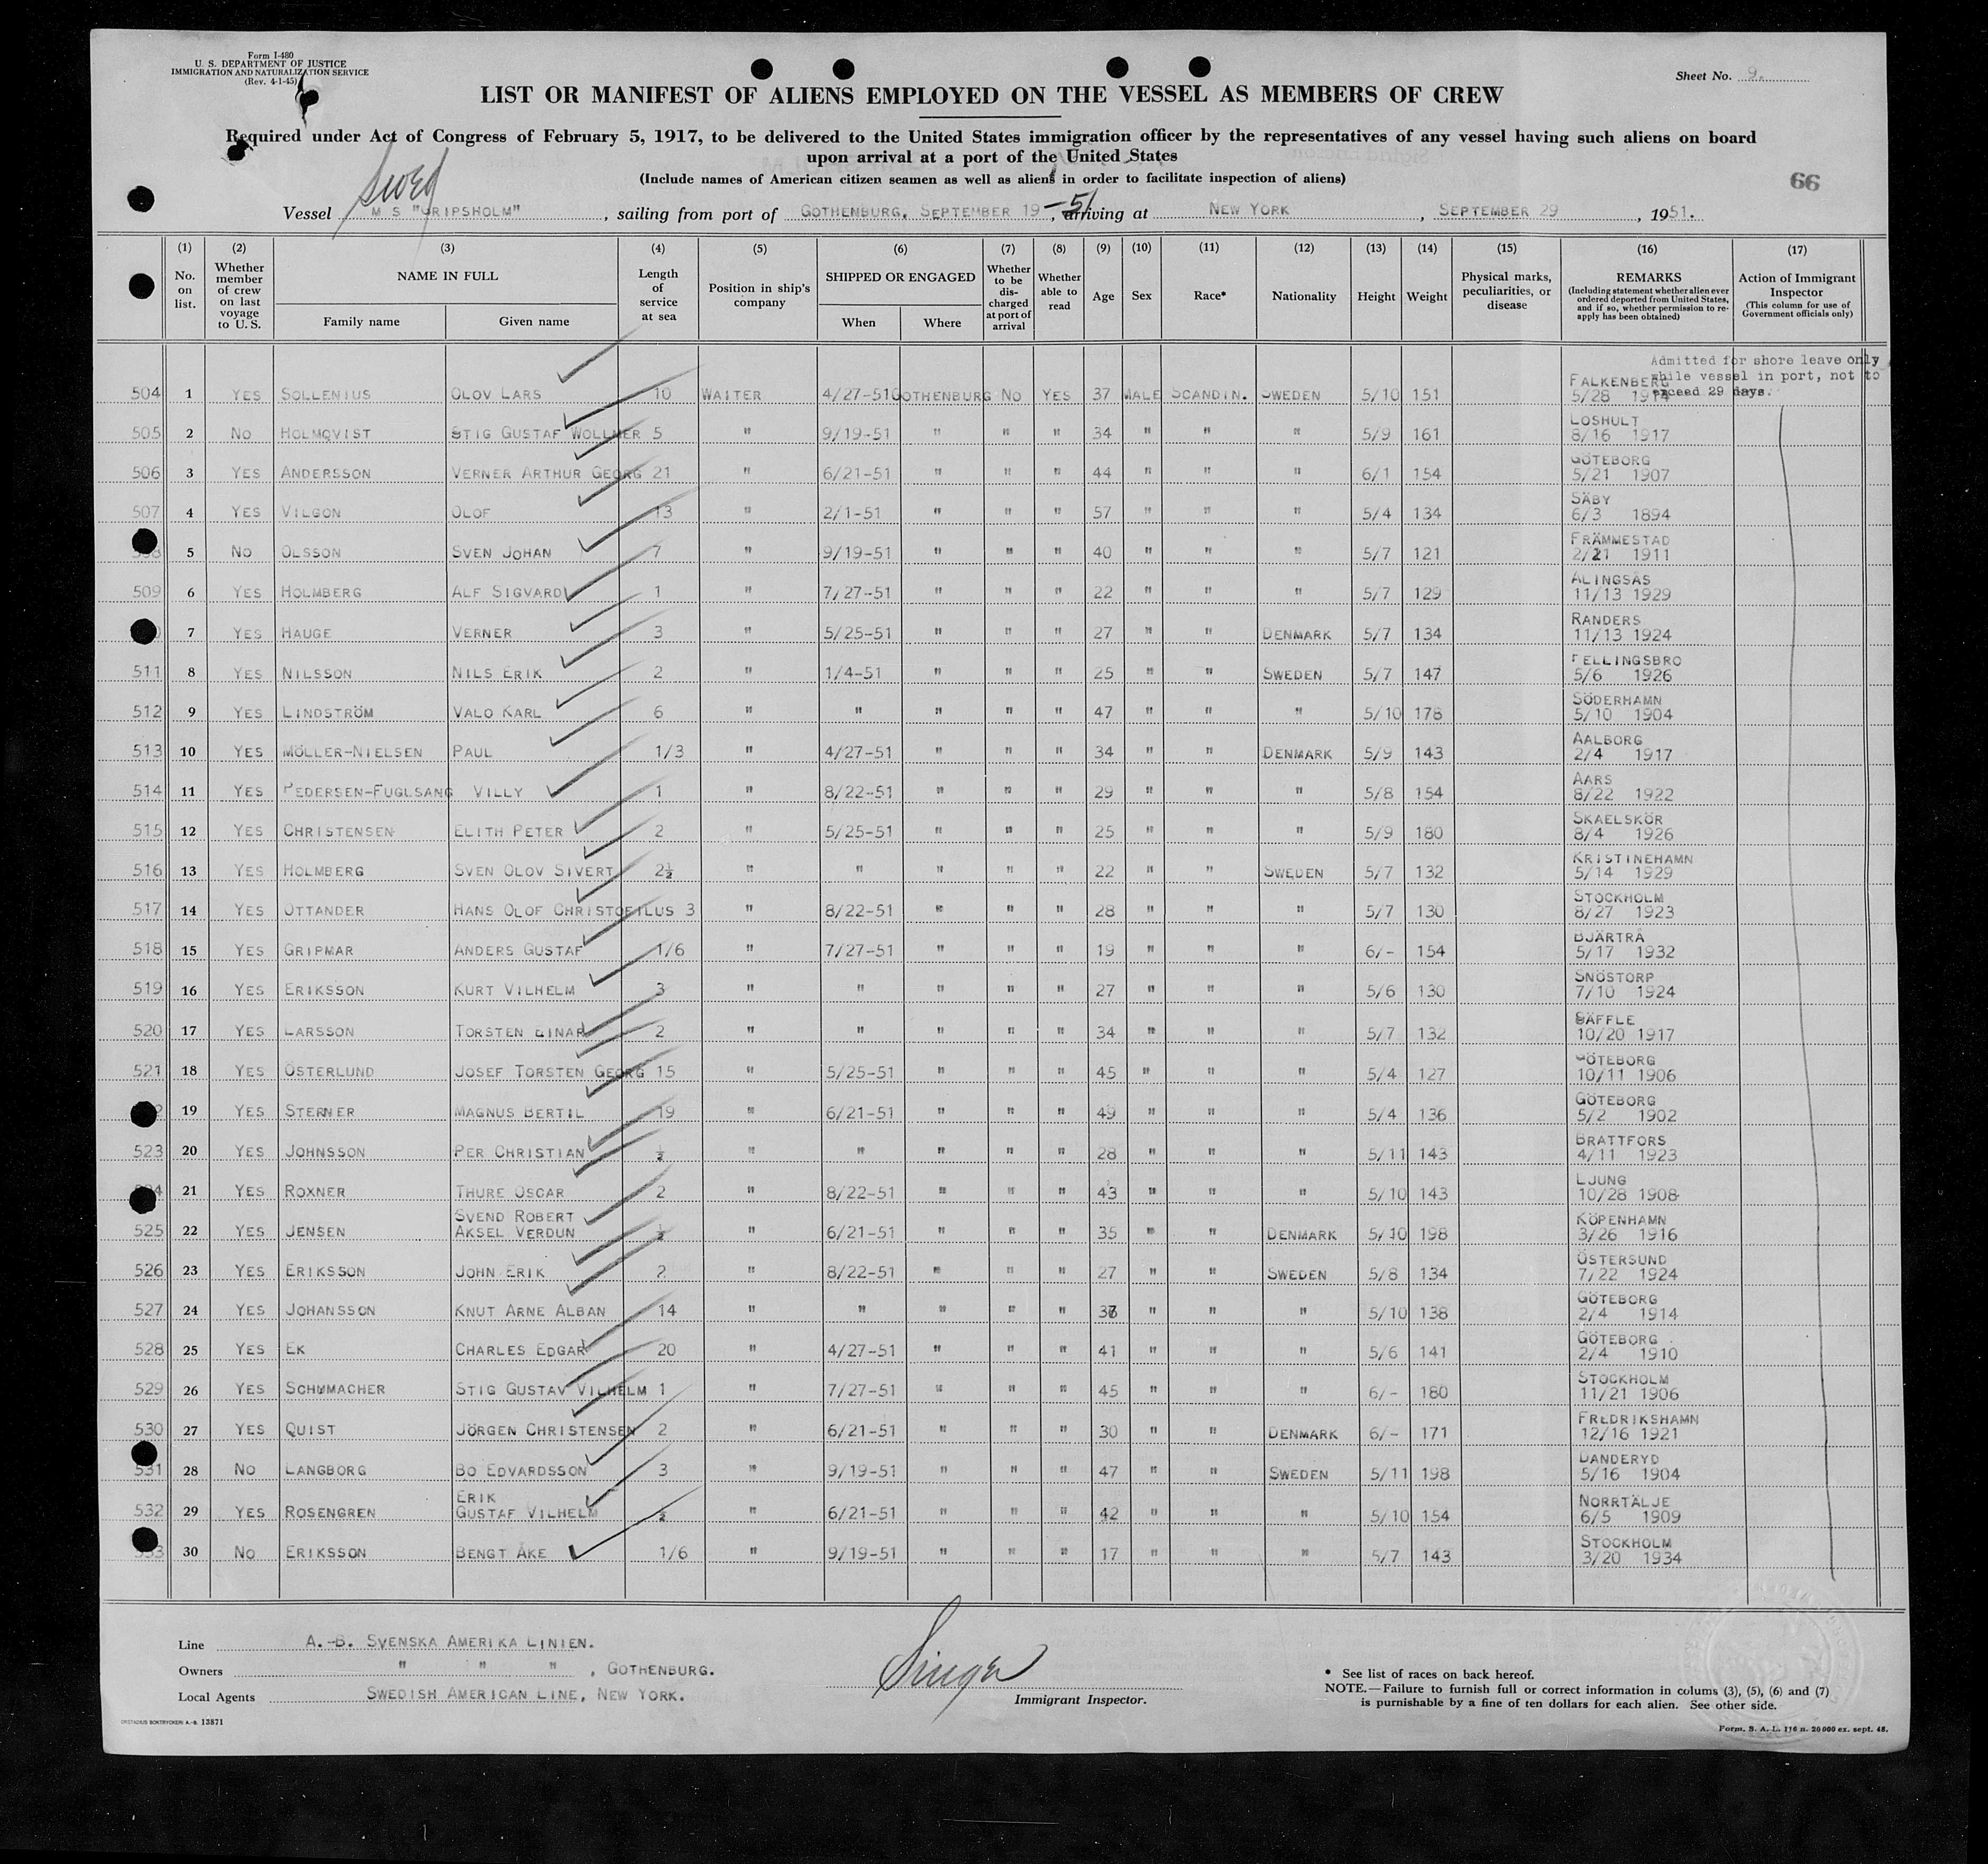 Form I-480
U. S. DEPARTMENT OF JUSTICE
IMMIGRATION AND NATURALIZATION SERVICE
(Rev. 4-1-45)
Sheet No. 9.
LIST OR MANIFEST OF ALIENS EMPLOYED ON THE VESSEL AS MEMBERS OF CREW
Required under Act of Congress of February 5, 1917, to be delivered to the United States immigration officer by the representatives of any vessel having such aliens on board
upon arrival at a port of the United States
(Include names of American citizen seamen as well as aliens in order to facilitate inspection of aliens)
66
Swed
Vessel M S "GRIPSHOLM", sailing from port of GOTHENBURG, SEPTEMBER 19 -51, arriving at NEW YORK, SEPTEMBER 29, 1951.
(1) (2) (3) (4) (5) (6) (7) (8) (9) (10) (11) (12) (13) (14) (15) (16) (17)
No. on list. Whether member of crew on last voyage to U. S. NAME IN FULL Family name Given name Length of service at sea Position in ship's company SHIPPED OR ENGAGED When Where Whether to be discharged at port of arrival Whether able to read Age Sex Race* Nationality Height Weight Physical marks, peculiarities, or disease REMARKS (Including statement whether alien ever ordered deported from United States, and if so, whether permission to re-apply has been obtained) Action of Immigrant Inspector (This column for use of Government officials only)
Admitted for shore leave only
while vessel in port, not to
exceed 29 days.
504 1 YES SOLLENIUS OLOV LARS 10 WAITER 4/27-51 GOTHENBURG NO YES 37 MALE SCANDIN. SWEDEN 5/10 151 FALKENBERG 5/28 1914
505 2 NO HOLMQVIST STIG GUSTAF WOLLMER 5 " 9/19-51 " " " 34 " " " 5/9 161 LOSHULT 8/16 1917
506 3 YES ANDERSSON VERNER ARTHUR GEORG 21 " 6/21-51 " " " 44 " " " 6/1 154 GÖTEBORG 5/21 1907
507 4 YES VILGON OLOF 13 " 2/1-51 " " " 57 " " " 5/4 134 SÄBY 6/3 1894
5 NO OLSSON SVEN JOHAN 7 " 9/19-51 " " " 40 " " " 5/7 121 FRÄMMESTAD 2/21 1911
509 6 YES HOLMBERG ALF SIGVARD 1 " 7/27-51 " " " 22 " " " 5/7 129 ALINGSÅS 11/13 1929
7 YES HAUGE VERNER 3 " 5/25-51 " " " 27 " " DENMARK 5/7 134 RANDERS 11/13 1924
511 8 YES NILSSON NILS ERIK 2 " 1/4-51 " " " 25 " " SWEDEN 5/7 147 FELLINGSBRO 5/6 1926
512 9 YES LINDSTRÖM VALO KARL 6 " " " " " 47 " " " 5/10 178 SÖDERHAMN 5/10 1904
513 10 YES MÖLLER-NIELSEN PAUL 1/3 " 4/27-51 " " " 34 " " DENMARK 5/9 143 AALBORG 2/4 1917
514 11 YES PEDERSEN-FUGLSANG VILLY 1 " 8/22-51 " " " 29 " " " 5/8 154 AARS 8/22 1922
515 12 YES CHRISTENSEN ELITH PETER 2 " 5/25-51 " " " 25 " " " 5/9 180 SKAELSKÖR 8/4 1926
516 13 YES HOLMBERG SVEN OLOV SIVERT 2½ " " " " " 22 " " SWEDEN 5/7 132 KRISTINEHAMN 5/14 1929
517 14 YES OTTANDER HANS OLOF CHRISTOFILUS 3 " 8/22-51 " " " 28 " " " 5/7 130 STOCKHOLM 8/27 1923
518 15 YES GRIPMAR ANDERS GUSTAF 1/6 " 7/27-51 " " " 19 " " " 6/- 154 BJÄRTRÅ 5/17 1932
519 16 YES ERIKSSON KURT VILHELM 3 " " " " " 27 " " " 5/6 130 SNÖSTORP 7/10 1924
520 17 YES LARSSON TORSTEN EINAR 2 " " " " " 34 " " " 5/7 132 SÄFFLE 10/20 1917
521 18 YES ÖSTERLUND JOSEF TORSTEN GEORG 15 " 5/25-51 " " " 45 " " " 5/4 127 GÖTEBORG 10/11 1906
19 YES STERNER MAGNUS BERTIL 19 " 6/21-51 " " " 49 " " " 5/4 136 GÖTEBORG 5/2 1902
523 20 YES JOHNSSON PER CHRISTIAN ½ " " " " " 28 " " " 5/11 143 BRATTFORS 4/11 1923
21 YES ROXNER THURE OSCAR 2 " 8/22-51 " " " 43 " " " 5/10 143 LJUNG 10/28 1908
525 22 YES JENSEN SVEND ROBERT AKSEL VERDUN ½ " 6/21-51 " " " 35 " " DENMARK 5/10 198 KÖPENHAMN 3/26 1916
526 23 YES ERIKSSON JOHN ERIK 2 " 8/22-51 " " " 27 " " SWEDEN 5/8 134 ÖSTERSUND 7/22 1924
527 24 YES JOHANSSON KNUT ARNE ALBAN 14 " " " " " 37 " " " 5/10 138 GÖTEBORG 2/4 1914
528 25 YES EK CHARLES EDGAR 20 " 4/27-51 " " " 41 " " " 5/6 141 GÖTEBORG 2/4 1910
529 26 YES SCHUMACHER STIG GUSTAV VILHELM 1 " 7/27-51 " " " 45 " " " 6/- 180 STOCKHOLM 11/21 1906
530 27 YES QUIST JÖRGEN CHRISTENSEN 2 " 6/21-51 " " " 30 " " DENMARK 6/- 171 FREDRIKSHAMN 12/16 1921
531 28 NO LANGBORG BO EDVARDSSON 3 " 9/19-51 " " " 47 " " SWEDEN 5/11 198 DANDERYD 5/16 1904
532 29 YES ROSENGREN ERIK GUSTAF VILHELM ½ " 6/21-51 " " " 42 " " " 5/10 154 NORRTÄLJE 6/5 1909
30 NO ERIKSSON BENGT ÅKE 1/6 " 9/19-51 " " " 17 " " " 5/7 143 STOCKHOLM 3/20 1934
Line A.-B. SVENSKA AMERIKA LINIEN.
Owners " " " , GOTHENBURG.
Local Agents SWEDISH AMERICAN LINE, NEW YORK.
Singer
Immigrant Inspector.
* See list of races on back hereof.
NOTE.—Failure to furnish full or correct information in colums (3), (5), (6) and (7)
is punishable by a fine of ten dollars for each alien. See other side.
ORSTADIUS BOKTRYCKERI A.-B. 13871
Form. S. A. L. 116 n. 20 000 ex. sept. 48.